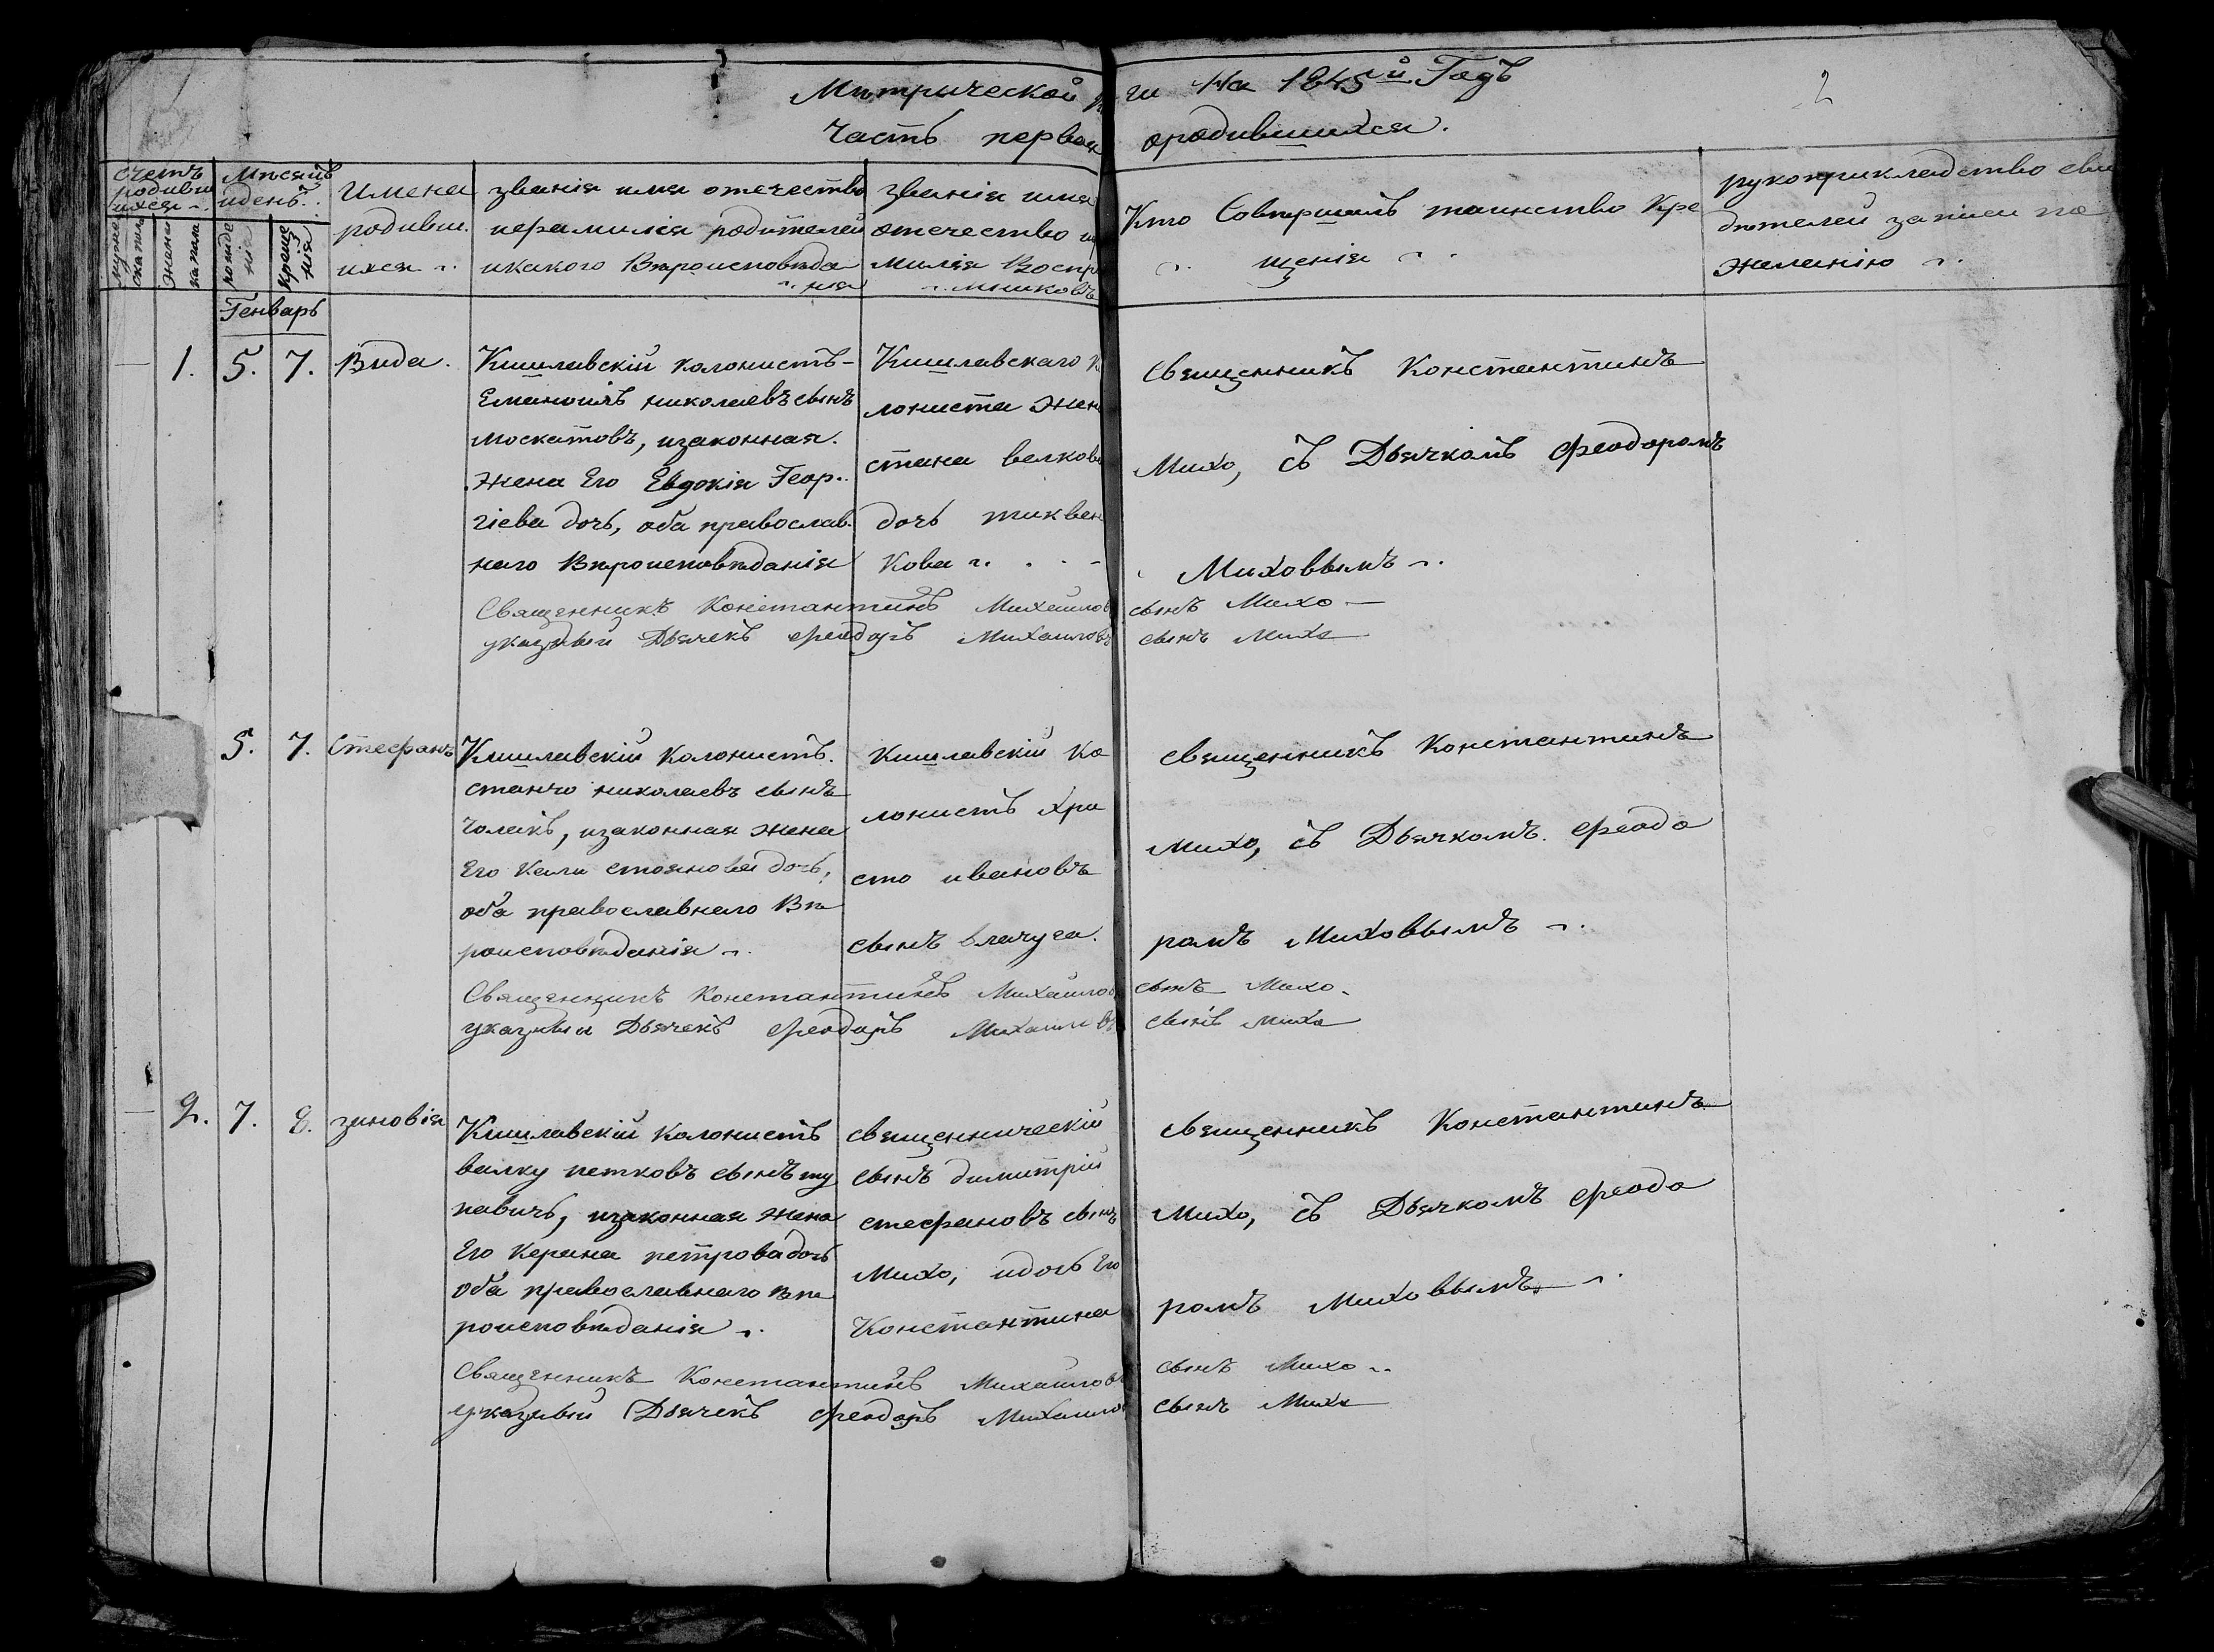 Мѣтрической ги На 1845й Годъ
2
Часть первая ородившихся.
счетъ родивш ихся
Мѣсяцъ иденъ
Имена родивш. ихся
званія имя отечество
ифамилія родителей
икакого Вѣроисповѣда
нія
званія имя
отечество и
милія Воспр
мниковъ
Кто Совершалъ таинство Кре
щенія
рукоприкладство сви
дѣтелей записи по
желанію
мужес
ка пола
женс
ка пола
рожде
нія
креще
нія
Генварь
1. 5. 7. Вида.
Кишлавскій колонистъ-
Емановилъ николаевъ сынъ
москатовъ, изаконная.
жена Его Евдокія Геор..
гіева дочь, оба православ.
наго Вѣроисповѣданія
Кишлавскаго к
лониста Жен
стана велкова
дочь тиквен
кова
священникъ Константинъ
Михо, съ Дьячкомъ Феодоромъ
Миховвымъ
Священникъ Константинъ Михайловъ сынъ Михо
указный Дьячекъ Феодоръ Михаиловъ сынъ Михо
5. 7. Стефанъ
Кишлавскій колонистъ.
станчо николаевъ сынъ
чолакъ, изаконная жена
Его Кали стоянова дочь,
оба православнаго Вѣ
роисповѣданія
Кишлавскій ко
лонистъ Хри
сто ивановъ
сынъ влачуга.
священникъ Константинъ
михо, съ Дьячкомъ. Феодо
ромъ Миховвымъ
Священникъ Константинъ Михайловъ сынъ Михо.
указный Дьячекъ Феодоръ Михаиловъ сынъ михо
2. 7. 8. зиновія
Кишлавскій колонистъ
валку петковъ сынъ ту
павичъ, изаконная жена
Его Керана петрова дочь
оба православнаго вѣ
роисповѣданія
священническій
сынъ димитрій
стефановъ сынъ
Михо, идочь Его
Константина
священникъ Константинъ
Михо, съ Дьячкомъ Феодо
ромъ Миховвымъ
Священникъ Константинъ Михайловъ сынъ Михо
указный Дьячекъ Феодоръ Михаилов сынъ Михо